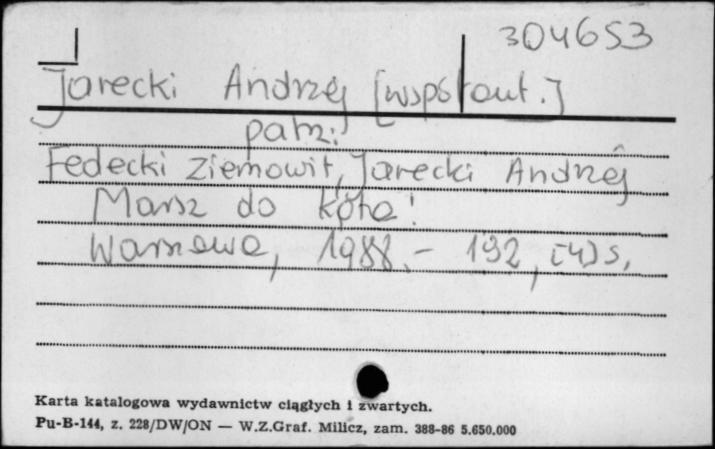 304653
Jarecki Andrzej [współaut.]
patrz:
Fedecki Ziemowit, Jarecki Andrzej
Marsz do koła!
Warszawa, 1988.- 192, [4] s.
Karta katalogowa wydawnictw ciągłych i zwartych.
Pu-B-144, z. 228/DW/ON — W.Z.Graf. Milicz, zam. 388-86 5.650.000